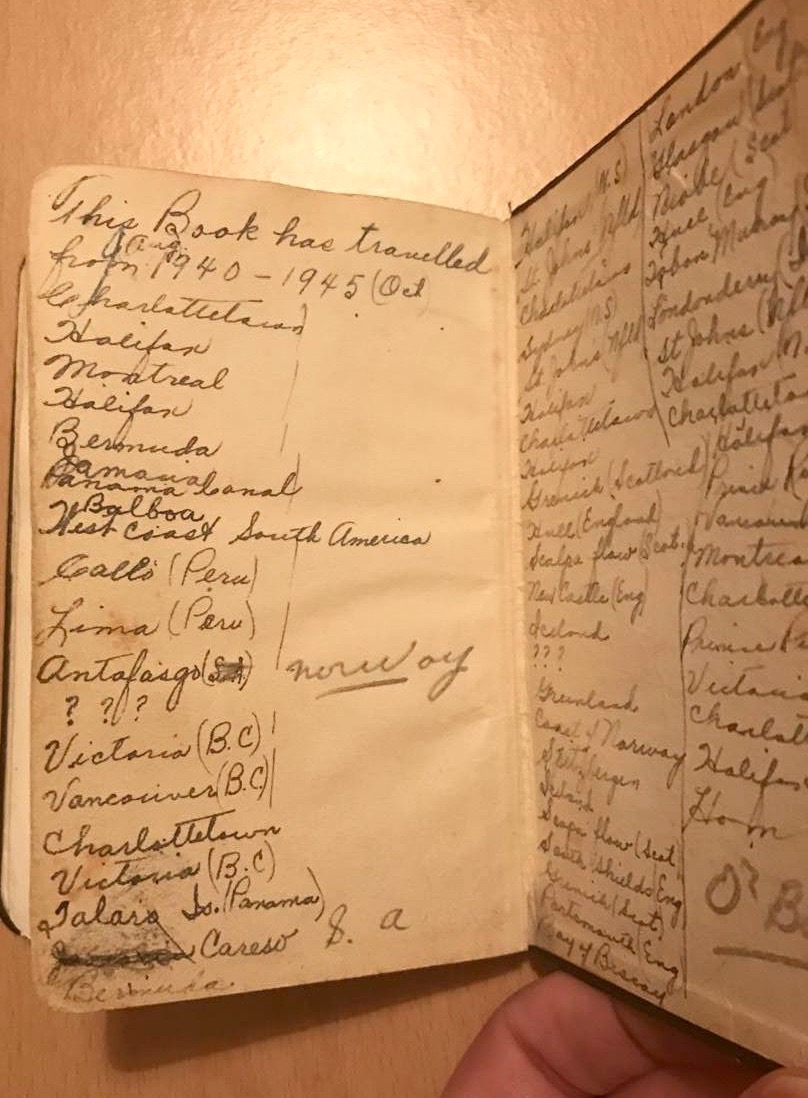 This Book has travelled
from Aug 1940 - 1945 (Oct)
Charlottetown
Halifax
Montreal
Halifax
Bermuda
Jamaica
Panama Canal
Balboa
West Coast South America
Callo (Peru)
Lima (Peru)
Antofasgo
norway
? ? ?
Victoria (B.C)
Vancouver (B.C)
Charlottetown
Victoria (B.C)
Talara Is. (Panama)
Careso S. a
Bermuda
Halifax (N.S)
St. Johns Nfld
Charlottetown
Sydney (N.S)
St. Johns Nfld
Halifax
Charlottetown
Halifax
Grenick (Scotland)
Hull (England)
Scalpa flow (Scot
New Castle (Eng)
Iceland
? ? ?
Greenland
Coast of Norway
Spitzbergen
Iceland
Scapa flow (Scot
South Shields Eng
Grenick (Scot)
Portsmouth Eng
Bay of Biscay
London (Eng
Glasgow (Scot
(Scot
Hull (Eng
Londonderry
St Johns (Nfl
Halifax
Charlotteto
Halifax
Prince R
Vancouv
Montrea
Charlotte
Prince
Victoria
Charlott
Halifax
Hom